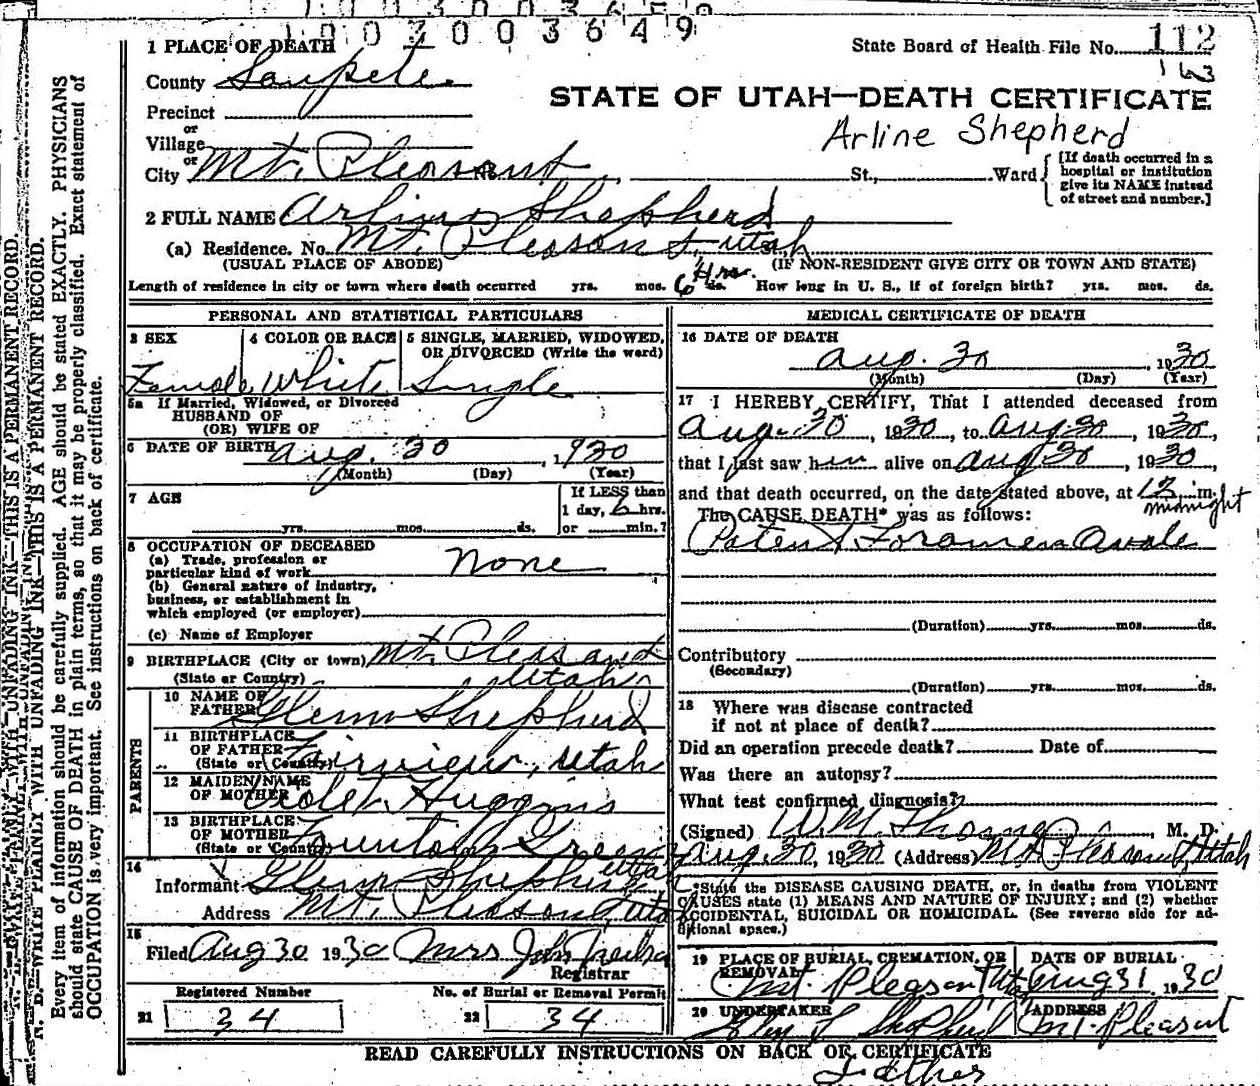 1007003649
1 PLACE OF DEATH
State Board of Health File No. 112
163
County Sanpete
STATE OF UTAH—DEATH CERTIFICATE
Precinct
Arline Shepherd
or
Village
or
City Mt. Pleasant St., Ward
[If death occurred in a hospital or institution give its NAME instead of street and number.]
2 FULL NAME Arline Shepherd
(a) Residence. No. Mt. Pleasant, Utah
(USUAL PLACE OF ABODE) (IF NON-RESIDENT GIVE CITY OR TOWN AND STATE)
Length of residence in city or town where death occurred yrs. mos. 6 Hrs. ds. How long in U. S., if of foreign birth? yrs. mos. ds.
PERSONAL AND STATISTICAL PARTICULARS
3 SEX 4 COLOR OR RACE 5 SINGLE, MARRIED, WIDOWED, OR DIVORCED (Write the word)
Female White Single
5a If Married, Widowed, or Divorced
HUSBAND OF
(OR) WIFE OF
6 DATE OF BIRTH Aug. 30 1930
(Month) (Day) (Year)
7 AGE
yrs. mos. ds.
If LESS than
1 day, 6 hrs.
or min.?
8 OCCUPATION OF DECEASED
(a) Trade, profession or
particular kind of work None
(b) General nature of industry,
business, or establishment in
which employed (or employer)
(c) Name of Employer
9 BIRTHPLACE (City or town) Mt. Pleasant
(State or Country) Utah
PARENTS
10 NAME OF
FATHER Glenn Shepherd
11 BIRTHPLACE
OF FATHER
(State or Country) Fairview, Utah
12 MAIDEN NAME
OF MOTHER Violet Huggins
13 BIRTHPLACE
OF MOTHER
(State or Country) Fountain Green Utah
14
Informant Glenn Shepherd
Address Mt. Pleasant, Utah
15
Filed Aug 30 1930 Mrs John
Registrar
Registered Number No. of Burial or Removal Permit
21 34 22 34
MEDICAL CERTIFICATE OF DEATH
16 DATE OF DEATH
Aug. 30, 1930
(Month) (Day) (Year)
17 I HEREBY CERTIFY, That I attended deceased from
Aug. 30, 1930, to Aug 30, 1930,
that I last saw h alive on Aug 30, 1930,
and that death occurred, on the date stated above, at 12 m.
midnight
The CAUSE DEATH* was as follows:
Patent Foramen Ovale
(Duration) yrs. mos. ds.
Contributory
(Secondary)
(Duration) yrs. mos. ds.
18 Where was disease contracted
if not at place of death?
Did an operation precede death? Date of
Was there an autopsy?
What test confirmed diagnosis?
(Signed) W.M. , M. D.
Aug. 30, 1930 (Address) Mt Pleasant, Utah
*State the DISEASE CAUSING DEATH, or, in deaths from VIOLENT
CAUSES state (1) MEANS AND NATURE OF INJURY; and (2) whether
ACCIDENTAL, SUICIDAL OR HOMICIDAL. (See reverse side for ad-
ditional space.)
19 PLACE OF BURIAL, CREMATION, OR REMOVAL DATE OF BURIAL
Mt. Pleasant Uta Aug 31 1930
20 UNDERTAKER ADDRESS
Shepherd Mt. Pleasant
READ CAREFULLY INSTRUCTIONS ON BACK OF CERTIFICATE
Father
N. B.—WRITE PLAINLY WITH UNFADING INK—THIS IS A PERMANENT RECORD.
Every item of information should be carefully supplied. AGE should be stated EXACTLY. PHYSICIANS
should state CAUSE OF DEATH in plain terms, so that it may be properly classified. Exact statement of
OCCUPATION is very important. See instructions on back of certificate.